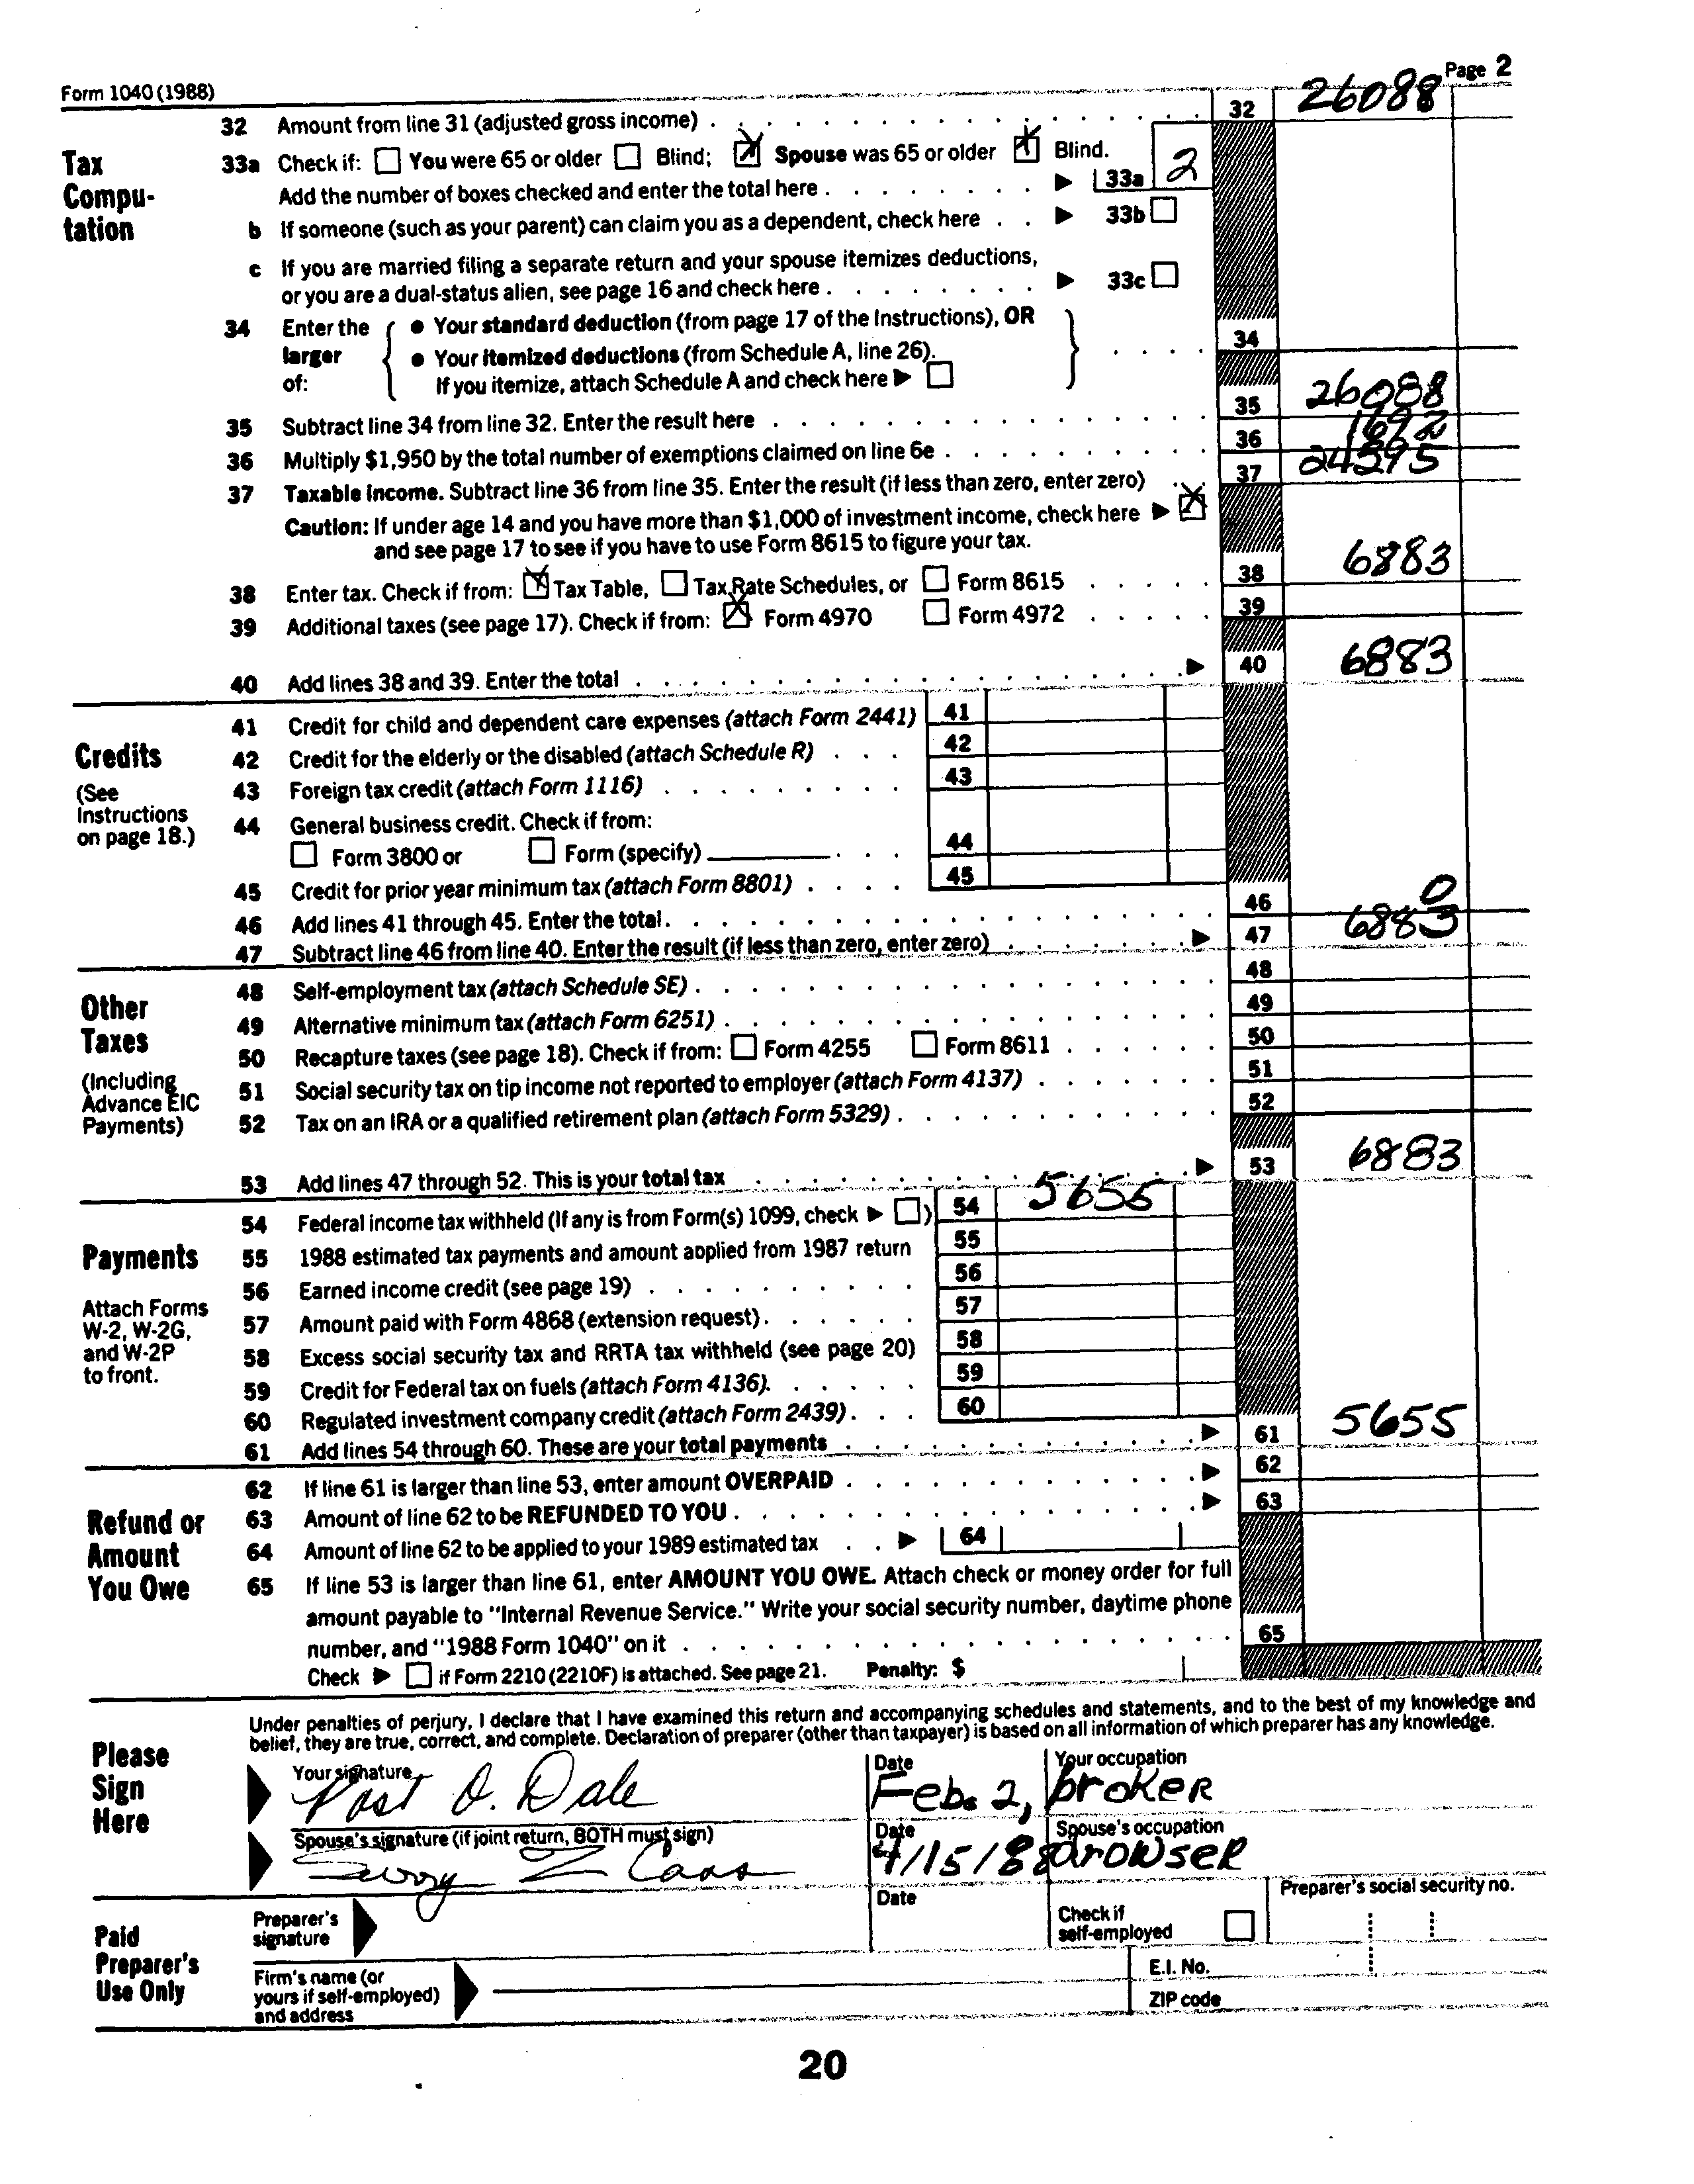 Form 1040 (1988)
Page 2
32 Amount from line 31 (adjusted gross income) . . . 32 26088
Tax Compu-tation
33a Check if: You were 65 or older Blind; X Spouse was 65 or older X Blind.
Add the number of boxes checked and enter the total here . . . 33a 2
b If someone (such as your parent) can claim you as a dependent, check here . . 33b
c If you are married filing a separate return and your spouse itemizes deductions,
or you are a dual-status alien, see page 16 and check here . . . 33c
34 Enter the larger of:
• Your standard deduction (from page 17 of the Instructions), OR
• Your itemized deductions (from Schedule A, line 26).
If you itemize, attach Schedule A and check here
34
35 Subtract line 34 from line 32. Enter the result here . . . 35 26088
36 Multiply $1,950 by the total number of exemptions claimed on line 6e . . . 36 1692
37 Taxable income. Subtract line 36 from line 35. Enter the result (if less than zero, enter zero) . . 37
Caution: If under age 14 and you have more than $1,000 of investment income, check here X
and see page 17 to see if you have to use Form 8615 to figure your tax.
38 Enter tax. Check if from: X Tax Table, Tax Rate Schedules, or Form 8615 . . . 38 6883
39 Additional taxes (see page 17). Check if from: X Form 4970 Form 4972 . . . 39
40 Add lines 38 and 39. Enter the total . . . 40 6883
Credits
(See
Instructions
on page 18.)
41 Credit for child and dependent care expenses (attach Form 2441) 41
42 Credit for the elderly or the disabled (attach Schedule R) . . . 42
43 Foreign tax credit (attach Form 1116) . . . 43
44 General business credit. Check if from:
Form 3800 or Form (specify) . . . 44
45 Credit for prior year minimum tax (attach Form 8801) . . . 45
46 Add lines 41 through 45. Enter the total . . . 46 0
47 Subtract line 46 from line 40. Enter the result (if less than zero, enter zero) . . . 47 6883
Other
Taxes
(Including
Advance EIC
Payments)
48 Self-employment tax (attach Schedule SE) . . . 48
49 Alternative minimum tax (attach Form 6251) . . . 49
50 Recapture taxes (see page 18). Check if from: Form 4255 Form 8611 . . . 50
51 Social security tax on tip income not reported to employer (attach Form 4137) . . . 51
52 Tax on an IRA or a qualified retirement plan (attach Form 5329) . . . 52
53 Add lines 47 through 52. This is your total tax . . . 53 6883
Payments
Attach Forms
W-2, W-2G,
and W-2P
to front.
54 Federal income tax withheld (If any is from Form(s) 1099, check ) 54 5655
55 1988 estimated tax payments and amount applied from 1987 return 55
56 Earned income credit (see page 19) . . . 56
57 Amount paid with Form 4868 (extension request) . . . 57
58 Excess social security tax and RRTA tax withheld (see page 20) 58
59 Credit for Federal tax on fuels (attach Form 4136). . . . 59
60 Regulated investment company credit (attach Form 2439) . . . 60
61 Add lines 54 through 60. These are your total payments . . . 61 5655
Refund or
Amount
You Owe
62 If line 61 is larger than line 53, enter amount OVERPAID . . . 62
63 Amount of line 62 to be REFUNDED TO YOU . . . 63
64 Amount of line 62 to be applied to your 1989 estimated tax . . 64
65 If line 53 is larger than line 61, enter AMOUNT YOU OWE. Attach check or money order for full
amount payable to "Internal Revenue Service." Write your social security number, daytime phone
number, and "1988 Form 1040" on it . . . 65
Check if Form 2210 (2210F) is attached. See page 21. Penalty: $
Please
Sign
Here
Under penalties of perjury, I declare that I have examined this return and accompanying schedules and statements, and to the best of my knowledge and
belief, they are true, correct, and complete. Declaration of preparer (other than taxpayer) is based on all information of which preparer has any knowledge.
Your signature Date Your occupation
Post O. Dale Feb. 2, broker
Spouse's signature (if joint return, BOTH must sign) Date Spouse's occupation
Z Cass 4/15/88 browser
Paid
Preparer's
Use Only
Preparer's signature
Date
Check if self-employed
Preparer's social security no.
Firm's name (or
yours if self-employed)
and address
E.I. No.
ZIP code
20